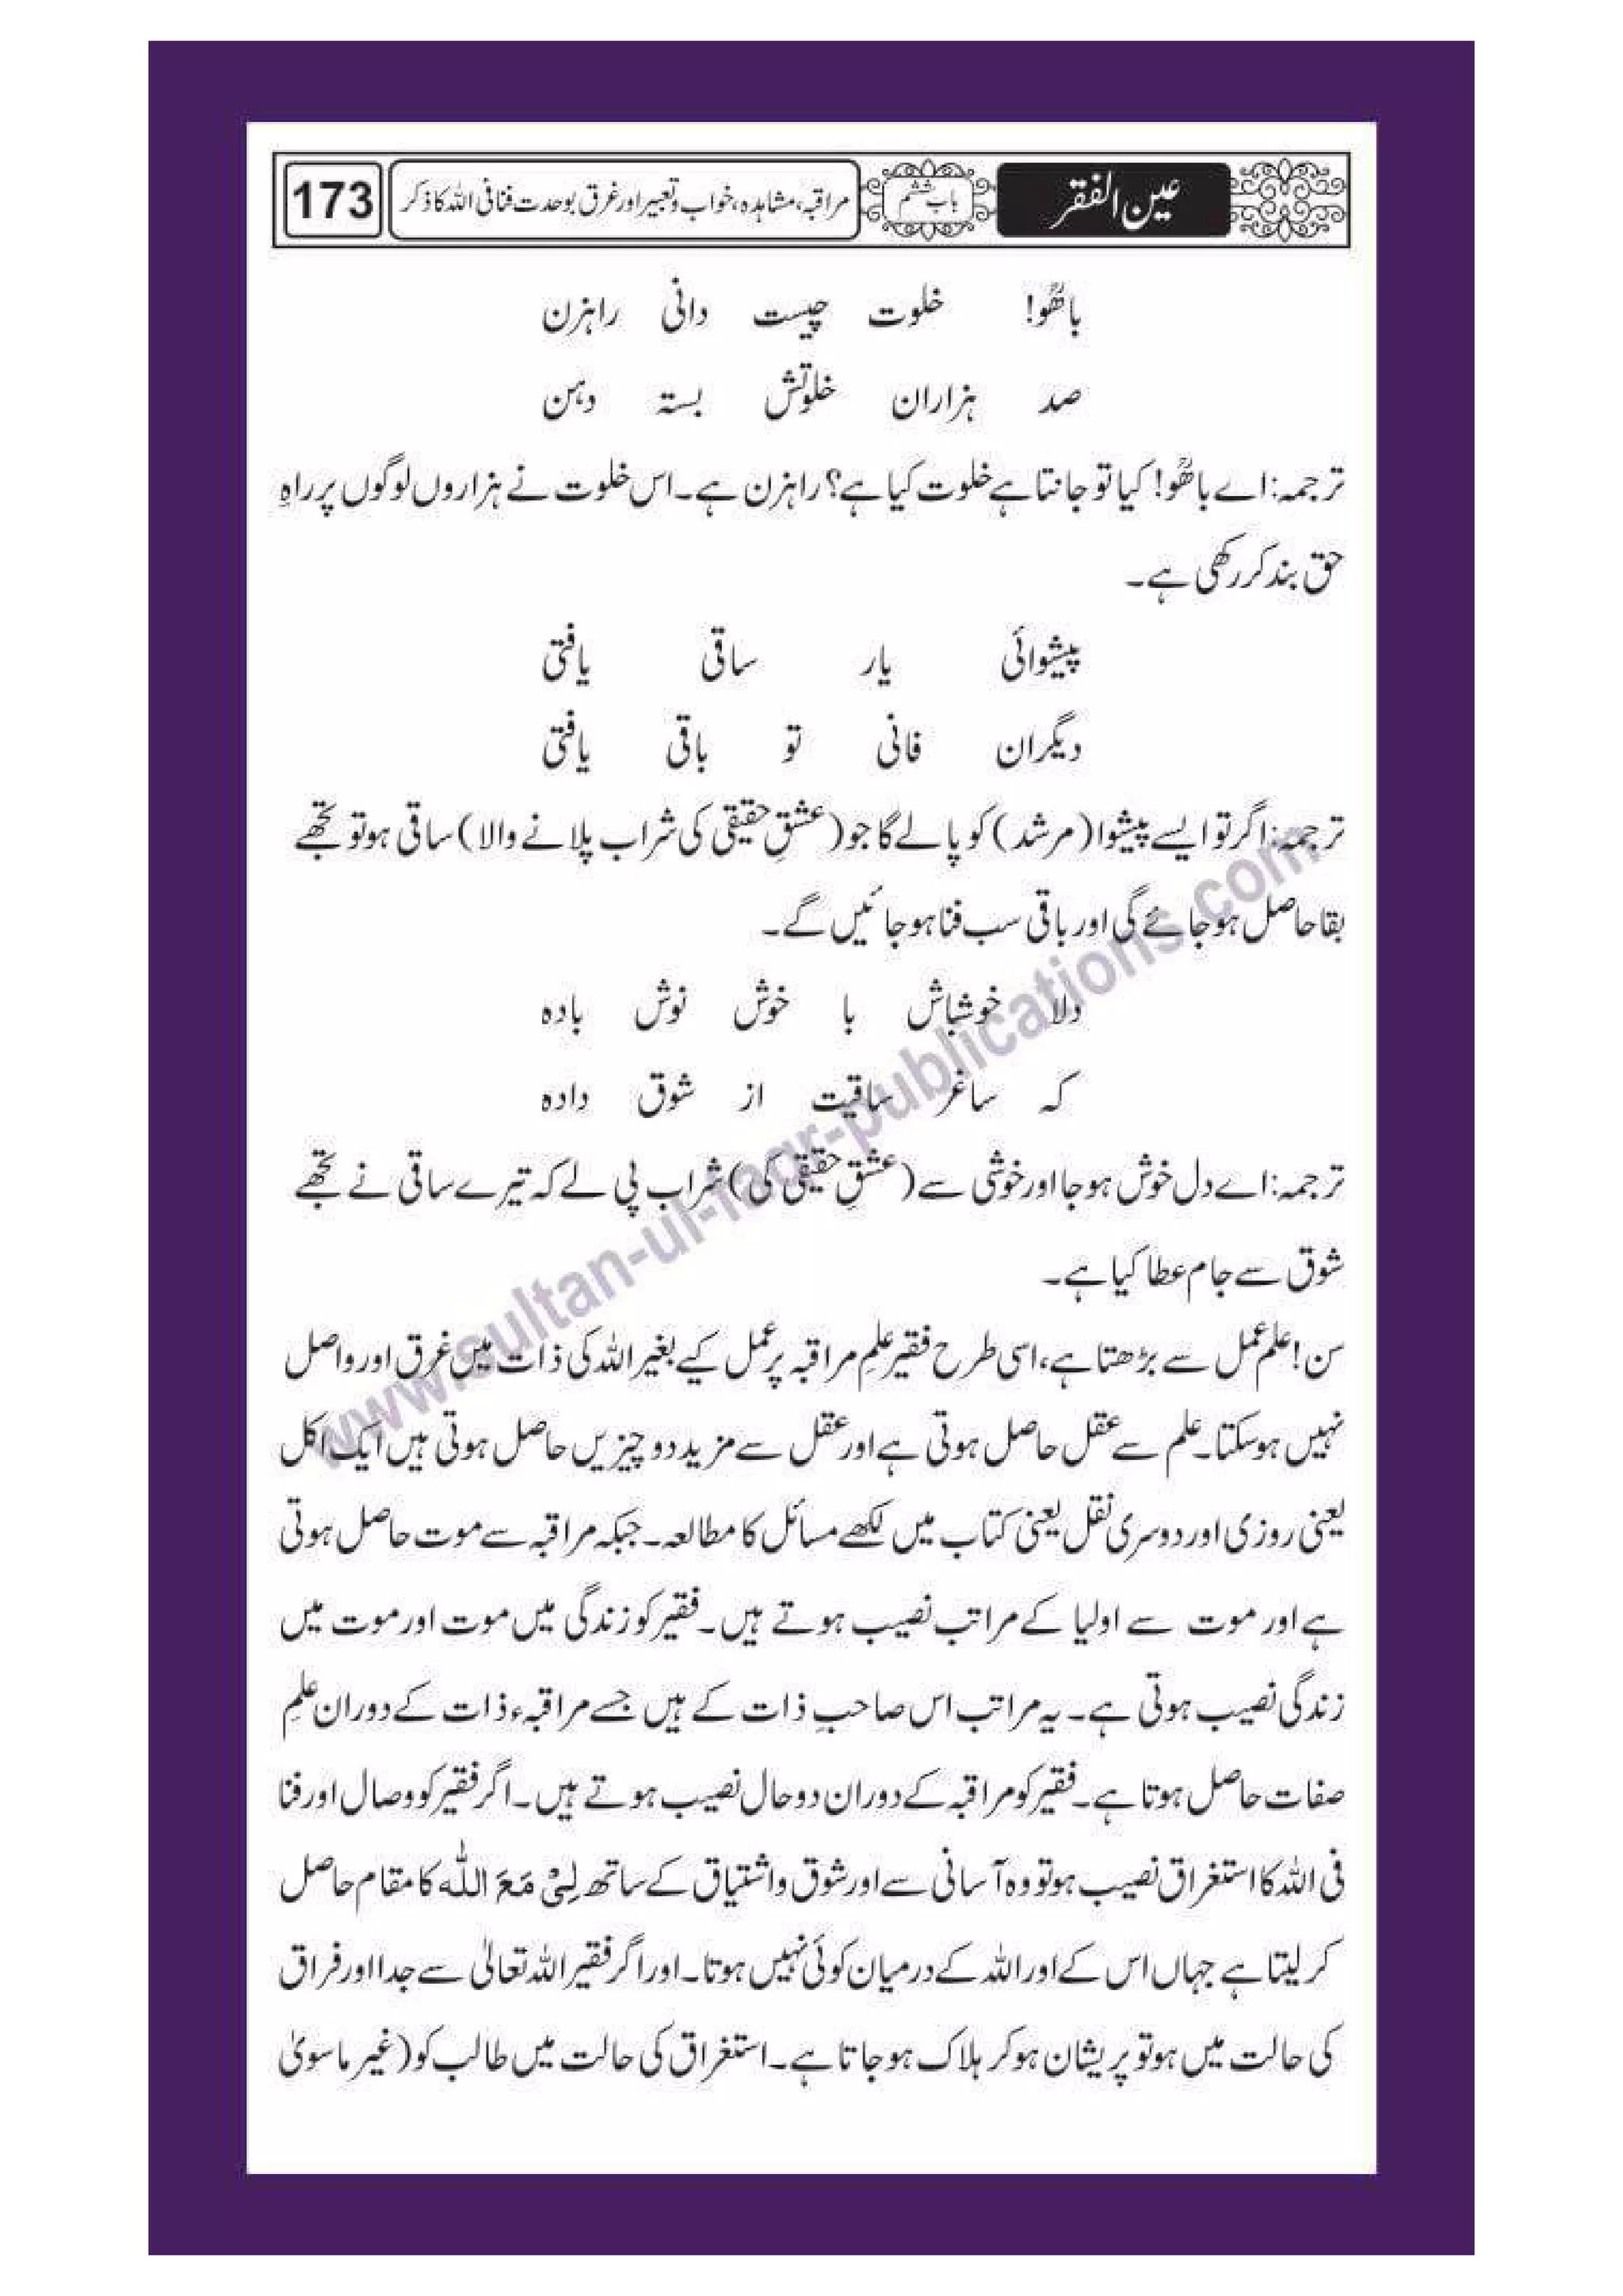 عین الفقر
باب ششم
مراقبہ، مشاہدہ، خواب و تعبیر اور غرق بوحدت فنا فی اللہ کا ذکر
173
باھُوؒ! خلوت چیست دانی راہزن
صد ہزاران خلوتش بستہ دہن
ترجمہ: اے باھُوؒ! کیا تو جانتا ہے خلوت کیا ہے؟ راہزن ہے۔ اس خلوت نے ہزاروں لوگوں پر راہِ
حق بند کر رکھی ہے۔
پیشوائی یار ساقی یافتی
دیگران فانی تو باقی یافتی
ترجمہ: اگر تو ایسے پیشوا (مرشد) کو پا لے گا جو (عشقِ حقیقی کی شراب پلانے والا) ساقی ہو تو تجھے
بقا حاصل ہو جائے گی اور باقی سب فنا ہو جائیں گے۔
دلا خوشباش با خوش نوش بادہ
کہ ساغر ساقیت از شوق دادہ
ترجمہ: اے دل خوش ہو جا اور خوشی سے (عشقِ حقیقی کی) شراب پی لے کہ تیرے ساقی نے تجھے
شوق سے جام عطا کیا ہے۔
سن! علم عمل سے بڑھتا ہے، اسی طرح فقیر علمِ مراقبہ پر عمل کیے بغیر اللہ کی ذات میں غرق اور واصل
نہیں ہو سکتا۔ علم سے عقل حاصل ہوتی ہے اور عقل سے مزید دو چیزیں حاصل ہوتی ہیں ایک اکل
یعنی روزی اور دوسری نقل یعنی کتاب میں لکھے مسائل کا مطالعہ۔ جبکہ مراقبہ سے موت حاصل ہوتی
ہے اور موت سے اولیا کے مراتب نصیب ہوتے ہیں۔ فقیر کو زندگی میں موت اور موت میں
زندگی نصیب ہوتی ہے۔ یہ مراتب اس صاحبِ ذات کے ہیں جسے مراقبۂ ذات کے دوران علمِ
صفات حاصل ہوتا ہے۔ فقیر کو مراقبہ کے دوران دو حال نصیب ہوتے ہیں۔ اگر فقیر کو وصال اور فنا
فی اللہ کا استغراق نصیب ہو تو وہ آسانی سے اور شوق و اشتیاق کے ساتھ لِیْ مَعَ اللّٰہ کا مقام حاصل
کر لیتا ہے جہاں اس کے اور اللہ کے درمیان کوئی نہیں ہوتا۔ اور اگر فقیر اللہ تعالیٰ سے جدا اور فراق
کی حالت میں ہو تو پریشان ہو کر ہلاک ہو جاتا ہے۔ استغراق کی حالت میں طالب کو (غیر ماسویٰ
www.sultan-ul-faqr-publications.com